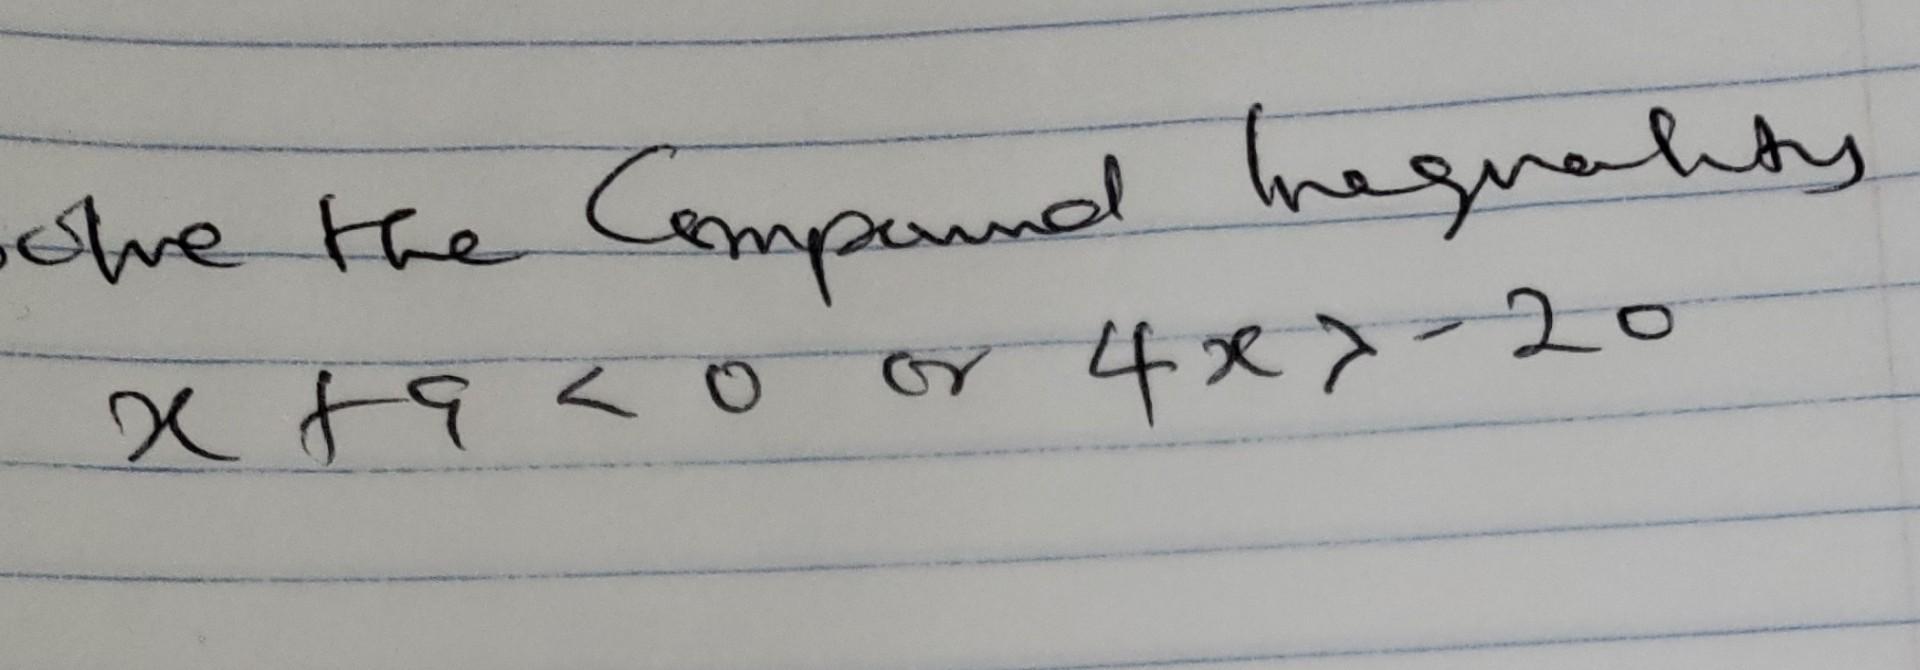 Solve the Compound Inequality
x + 9 < 0 or 4x > - 20